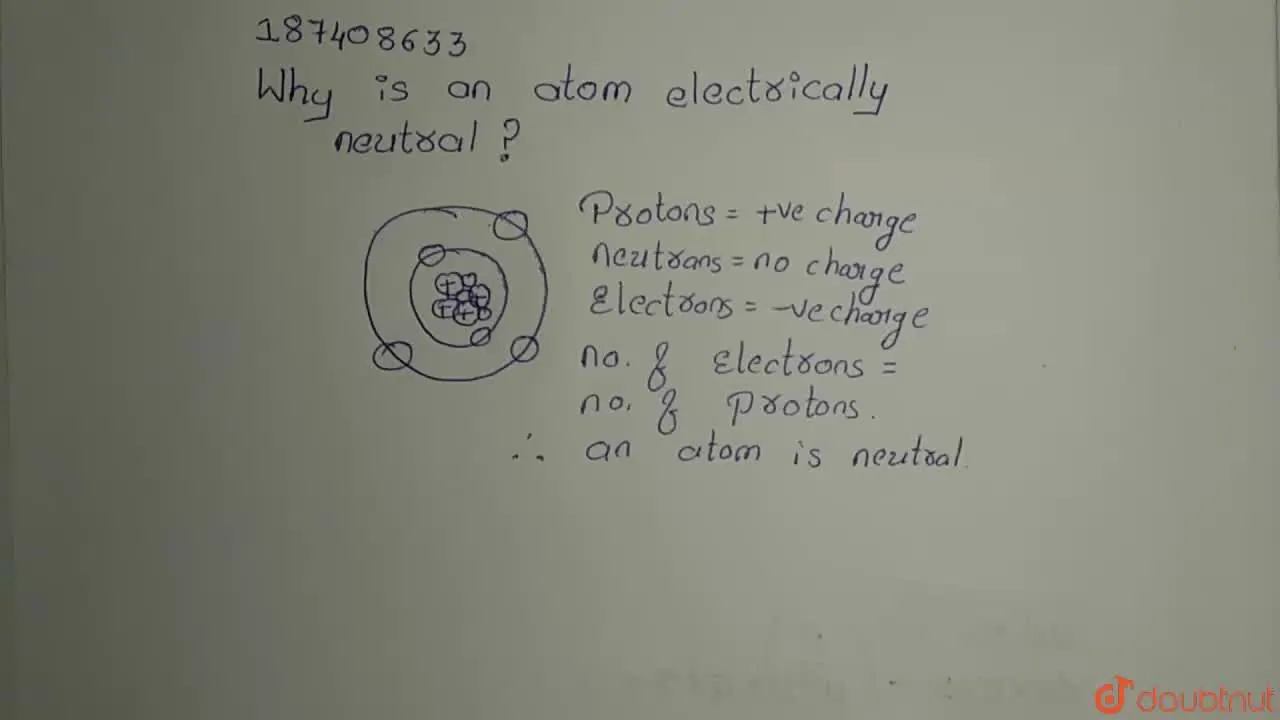 187408633
Why is an atom electrically
neutral ?
Protons = +ve charge
neutrans = no charge
Electrons = -ve charge
no. of Electrons =
no. of protons.
∴ an atom is neutral.
+
+
+
+
doubtnut